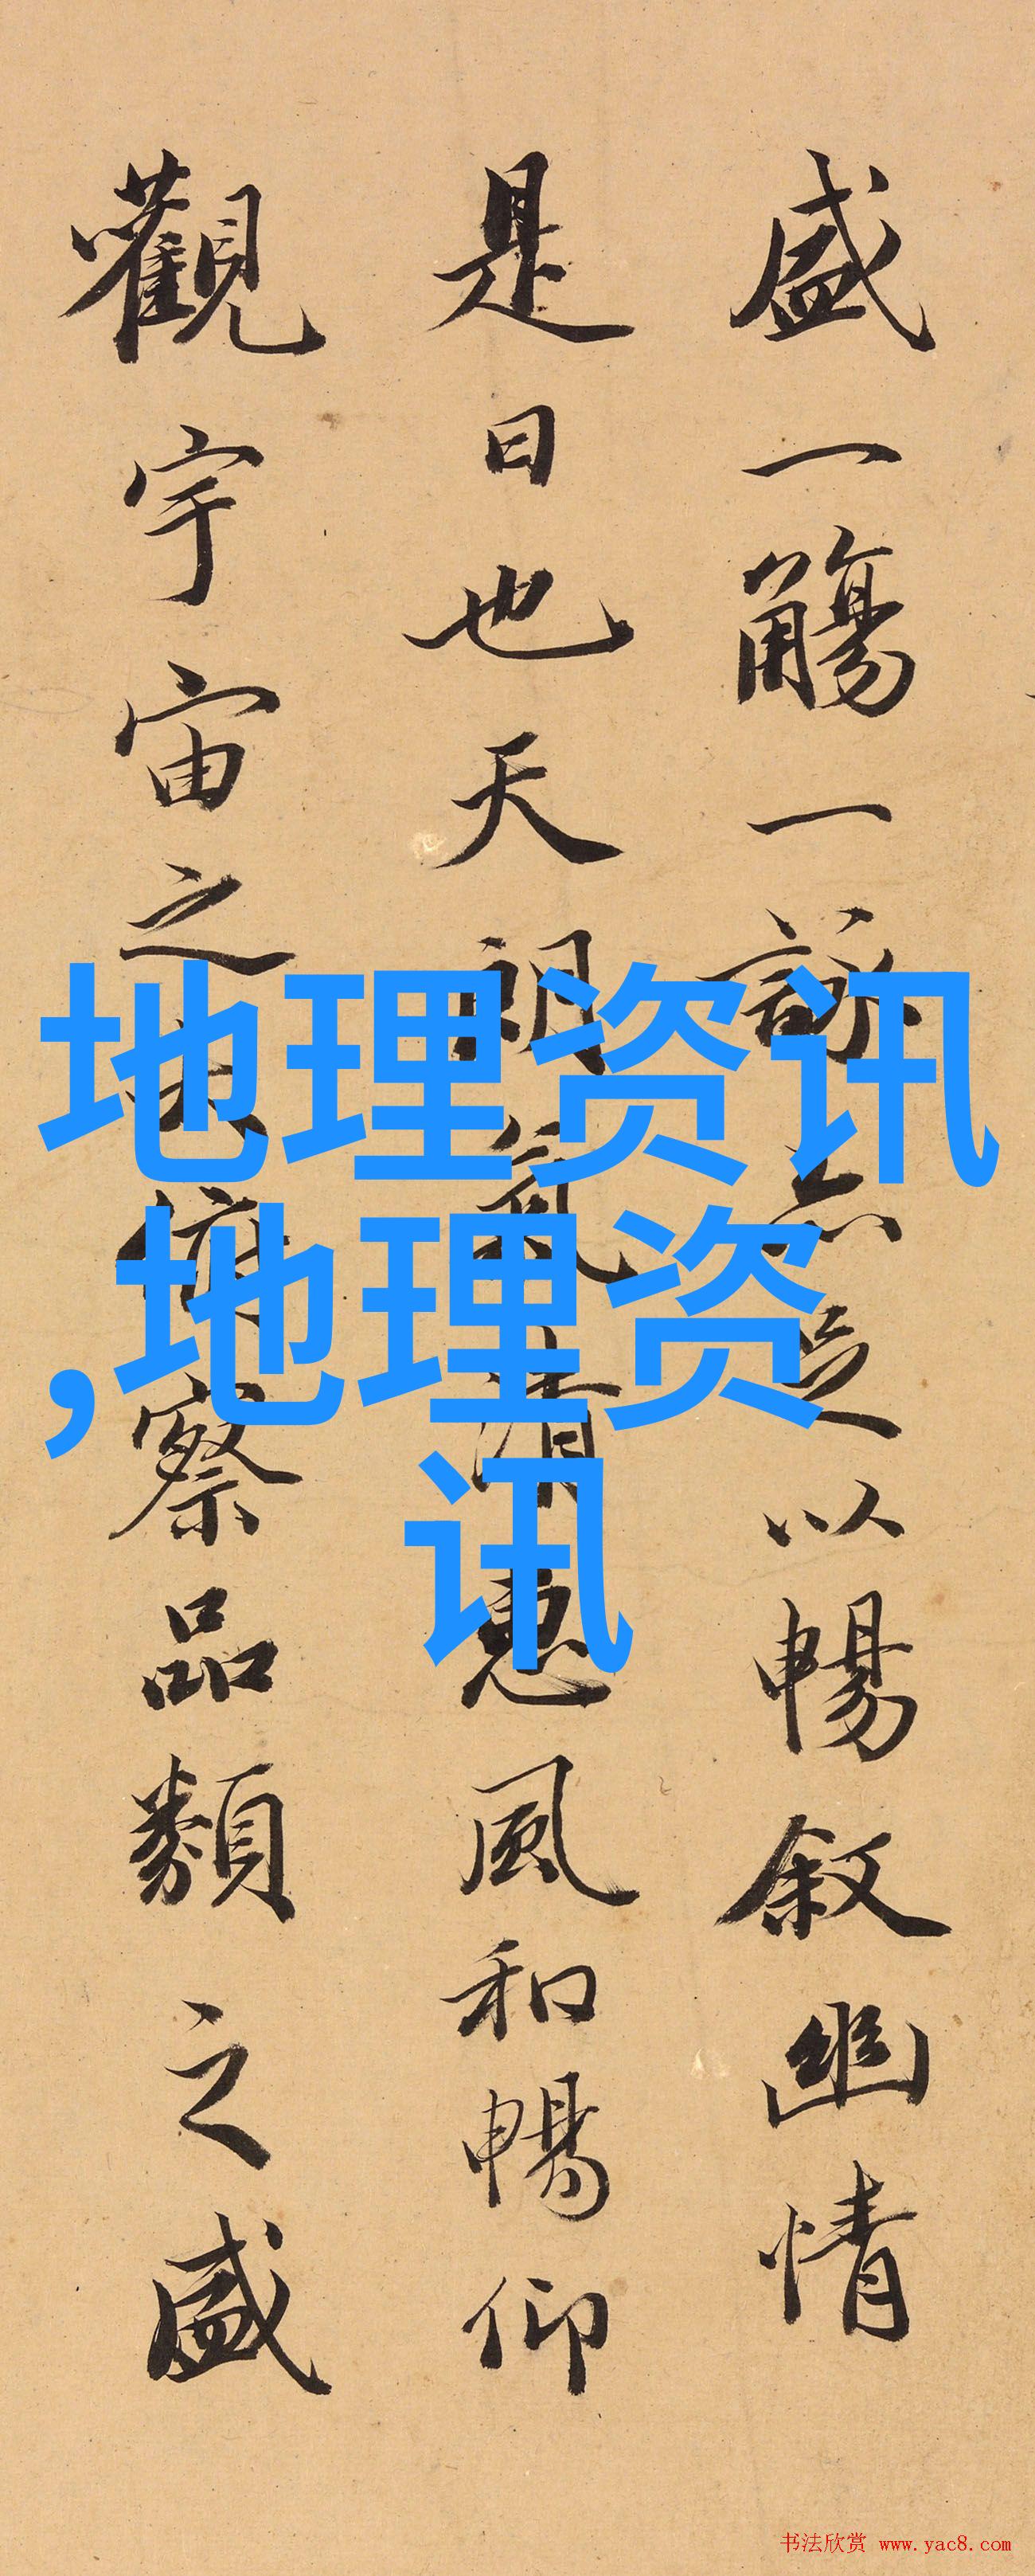 盛一觴一詠亦足以暢叙幽情
是日也天朗氣清惠風和暢仰
觀宇宙之大俯察品類之盛
地理资讯
,地理资
讯
书法欣赏 www.yac8.com